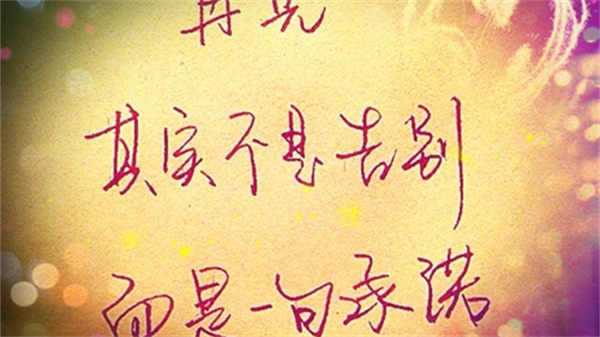 再见
其实不是告别
而是一句承诺